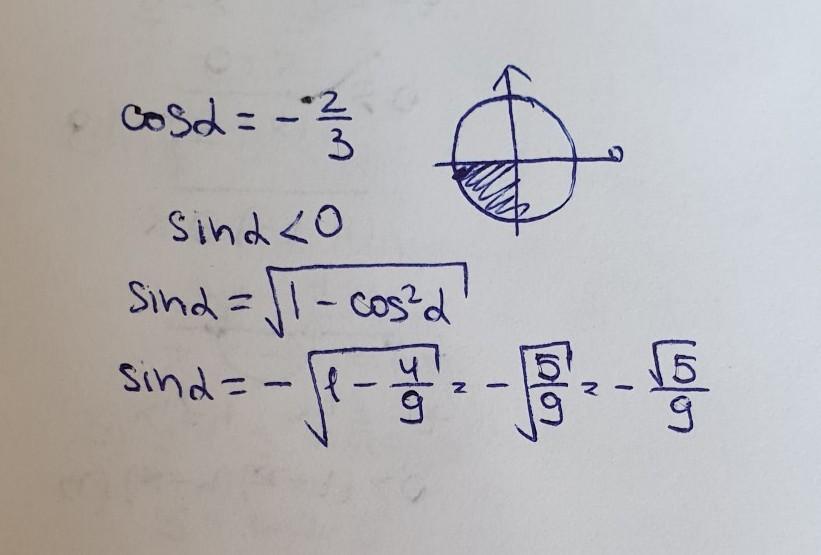 cosα = - 2/3
sinα < 0
sinα = √(1 - cos²α)
sinα = - √(1 - 4/9) = - √(5/9) = - √5/9